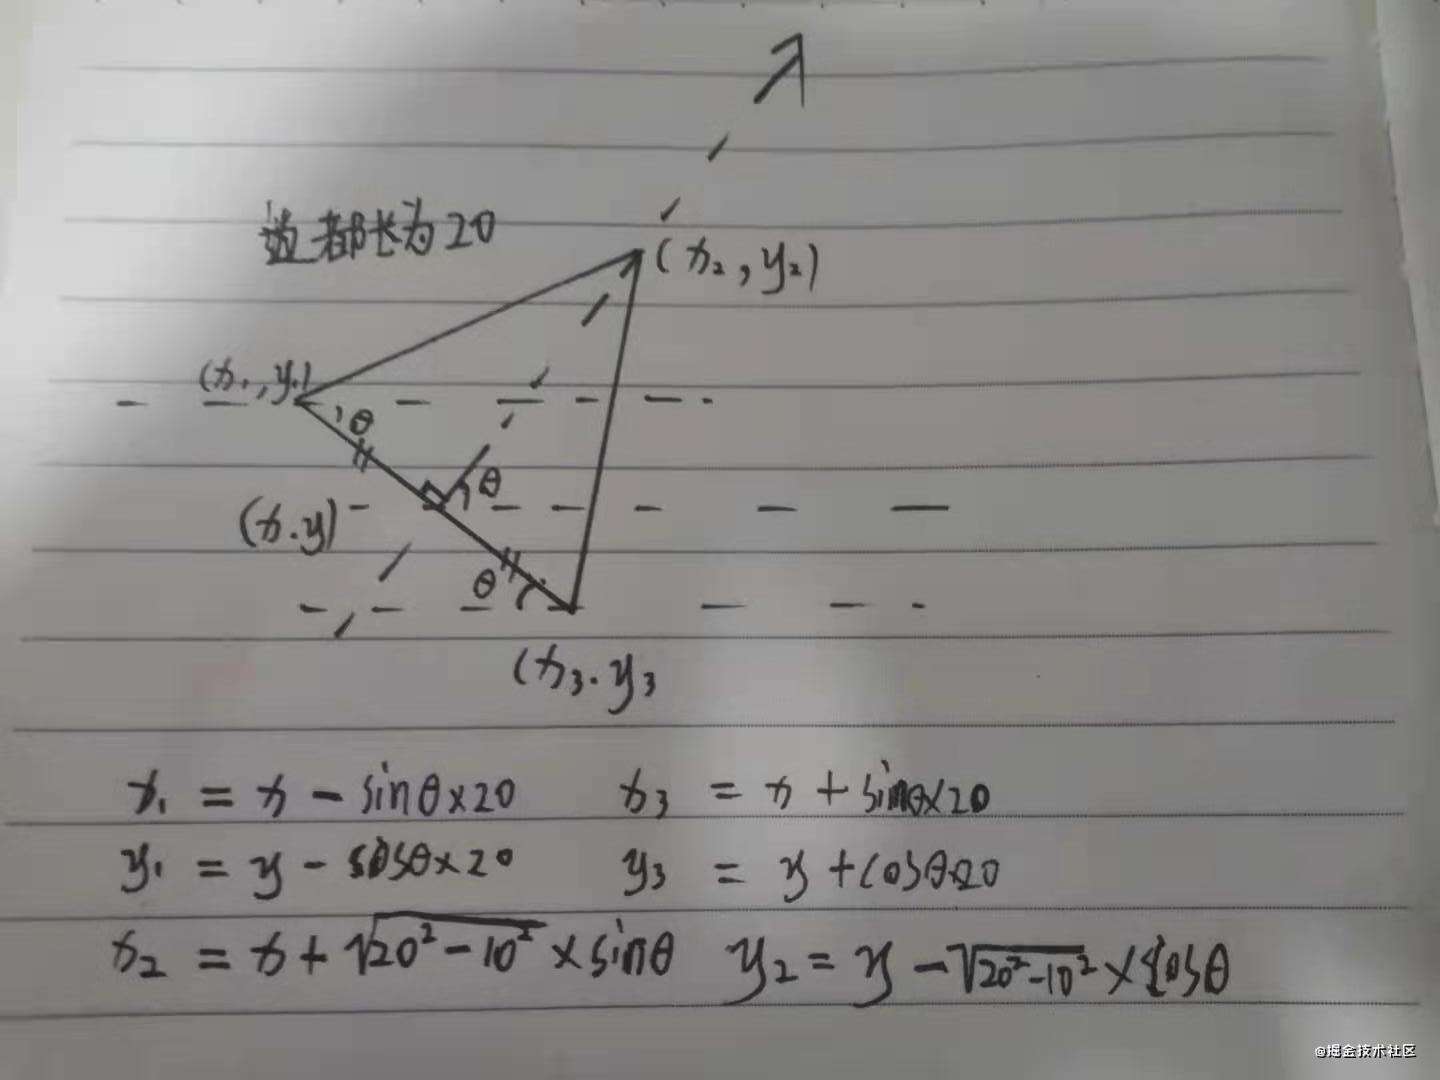 边都长为20
(x₂,y₂)
(x₁,y₁)
θ
θ
(x.y)
θ
(x₃.y₃
x₁ = x - sinθ×20 x₃ = x + sinθ×20
y₁ = y - cosθ×20 y₃ = y + cosθ×20
x₂ = x + √20²-10² × sinθ y₂ = y - √20²-10² × cosθ
@掘金技术社区